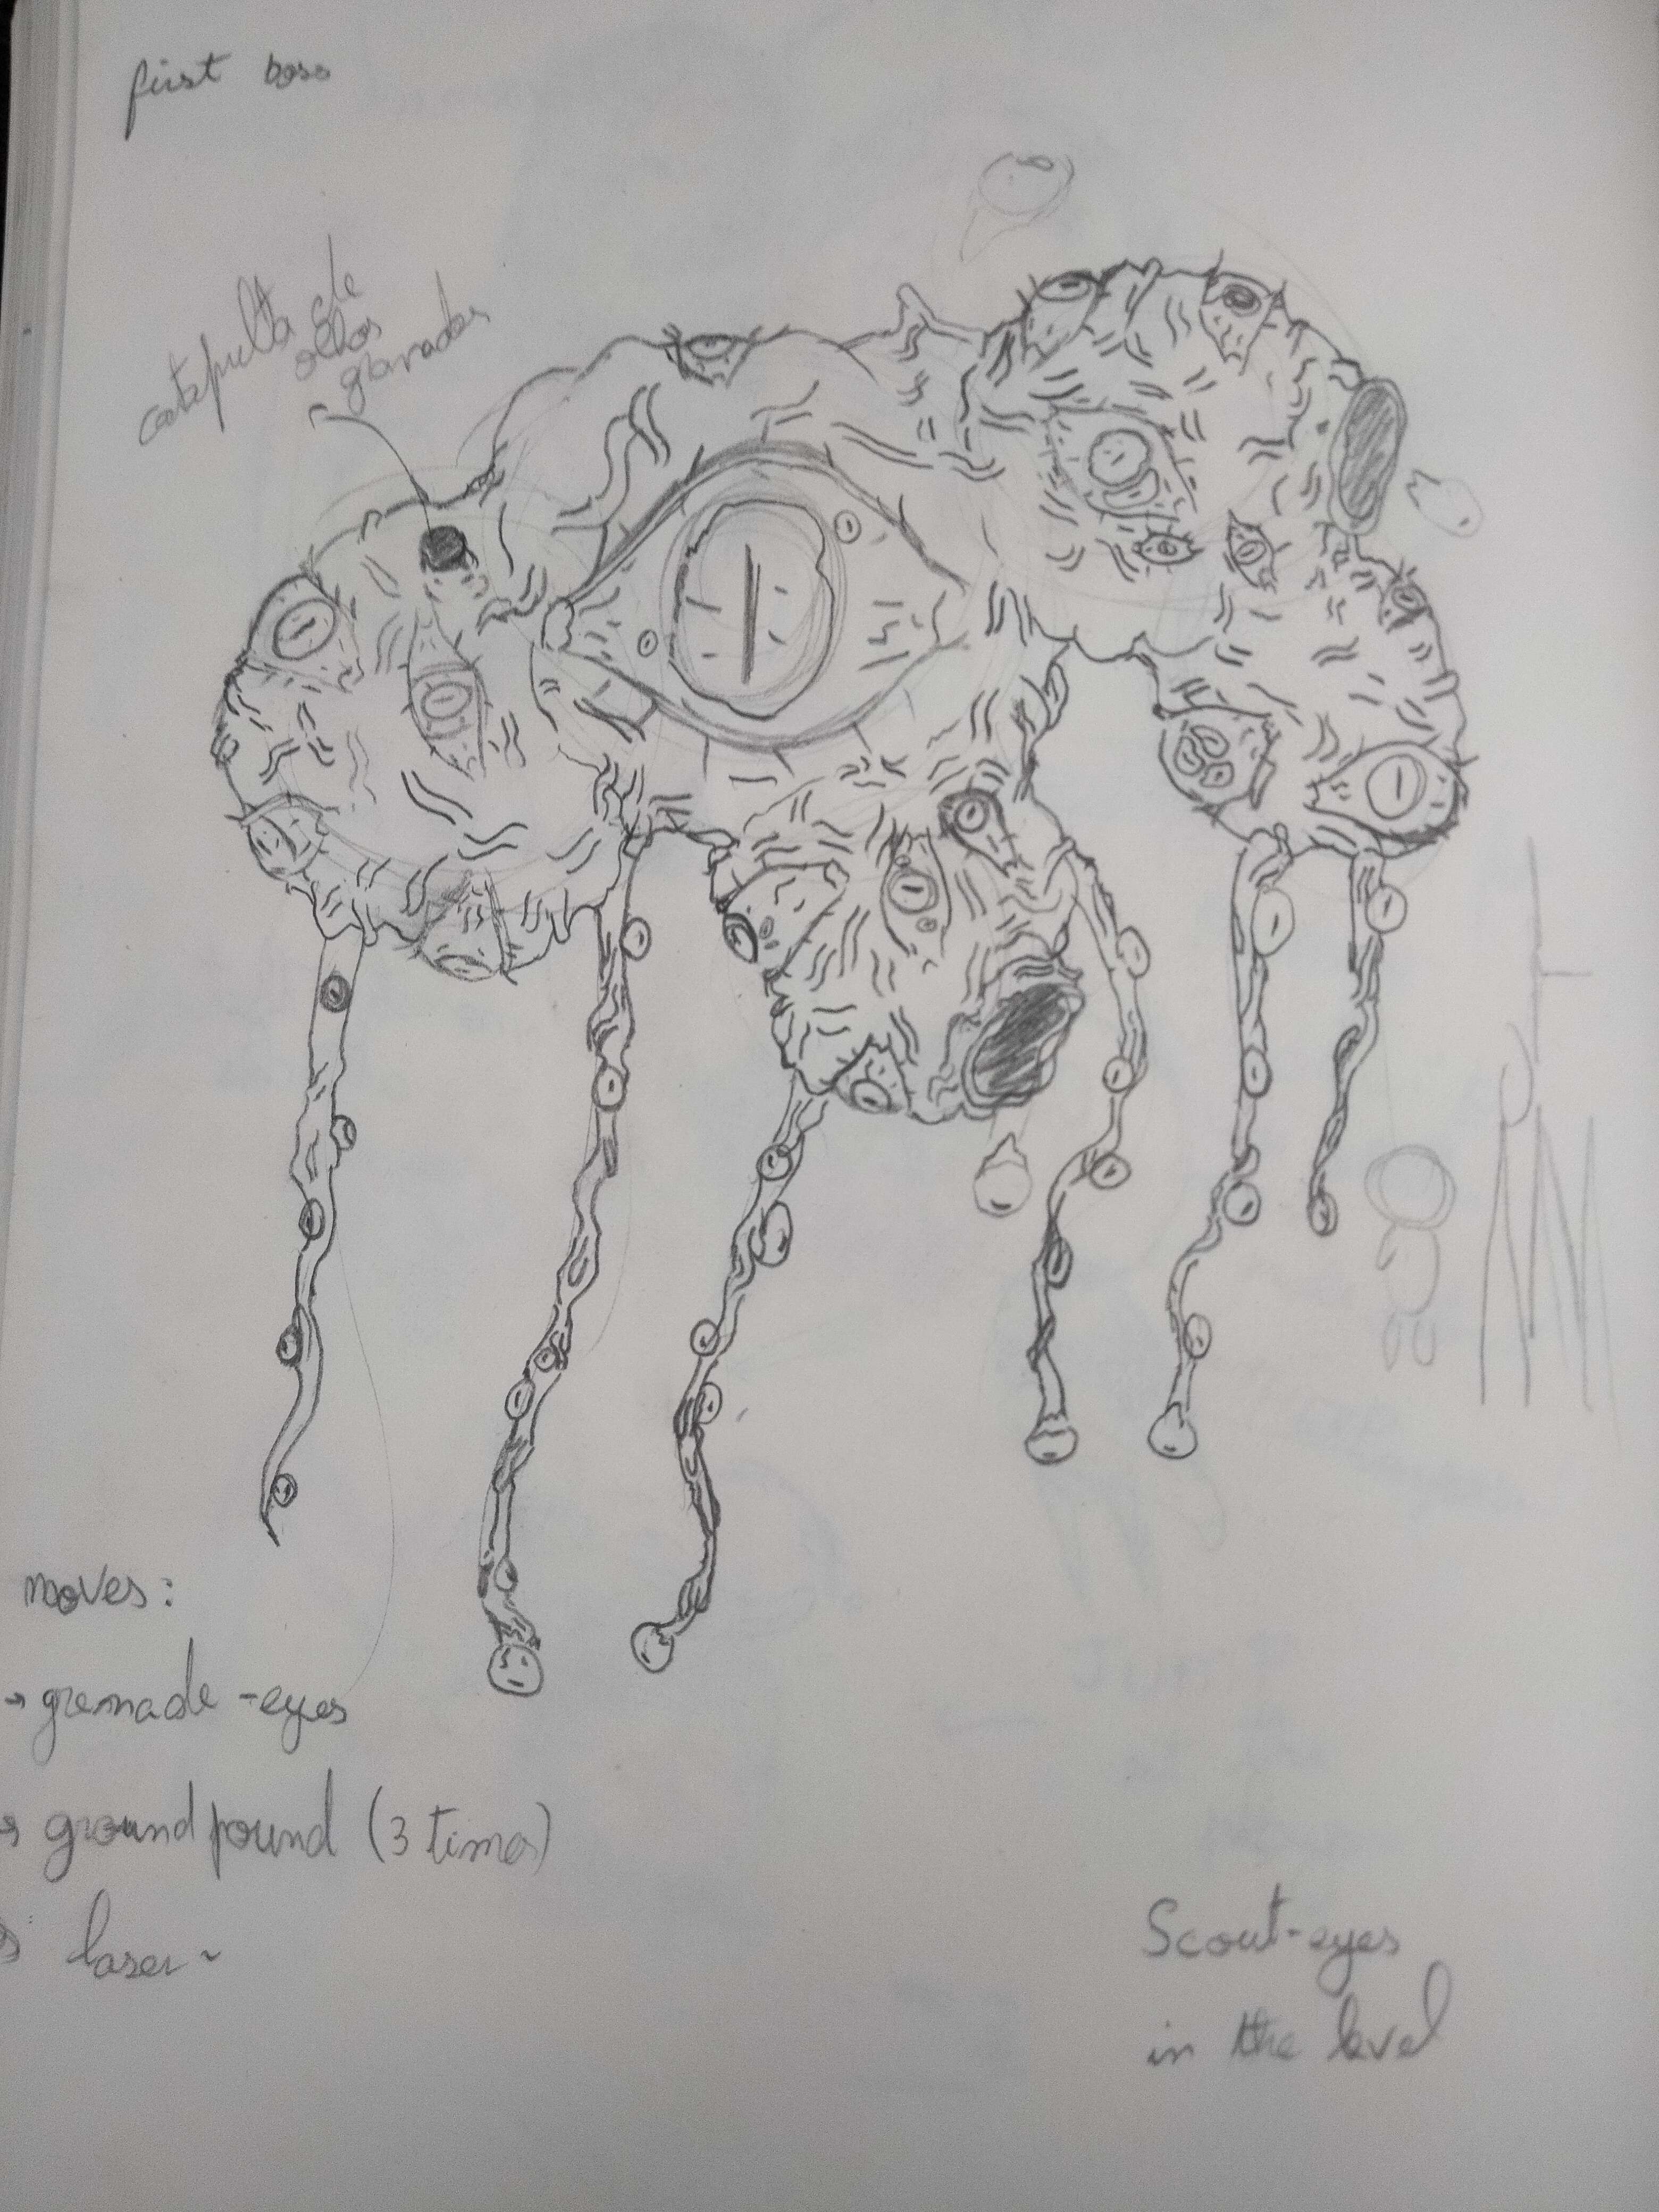 first boss
catapulta de
olhos
granadas
moves:
→ grenade-eyes
→ ground pound (3 times)
→ laser ~
Scout-eyes
in the level